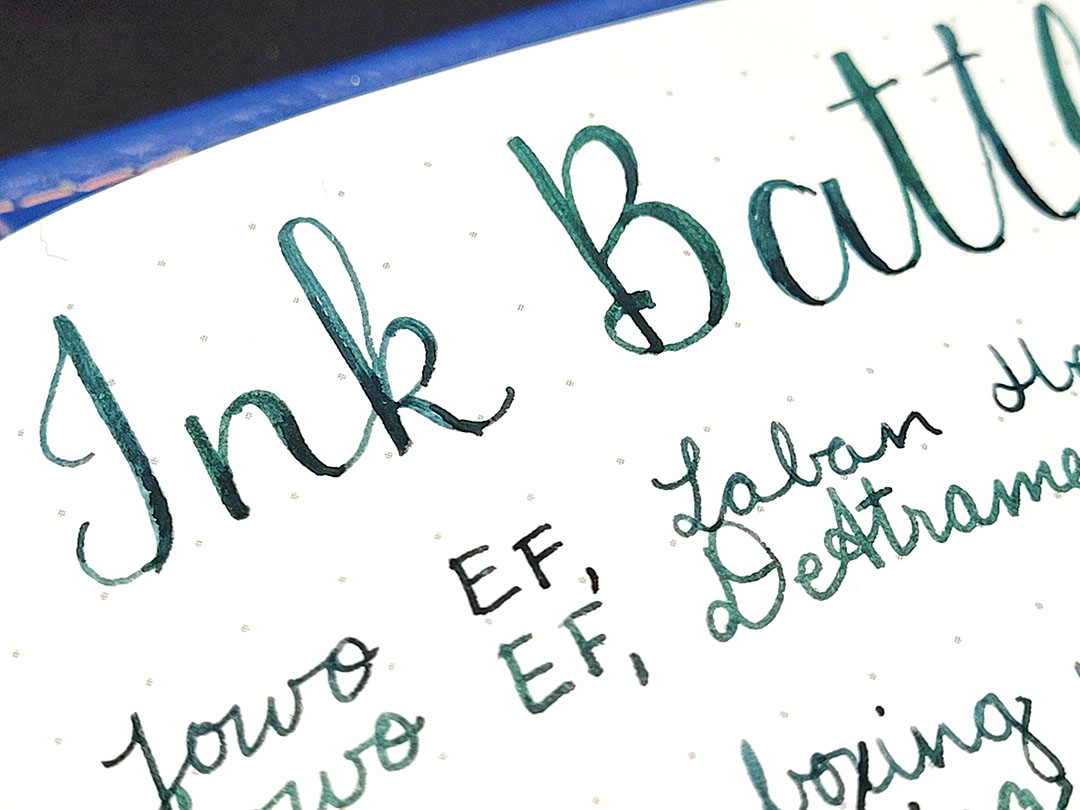 Ink Battl
Jowo EF, Laban
EF, DeAtrame
boxing